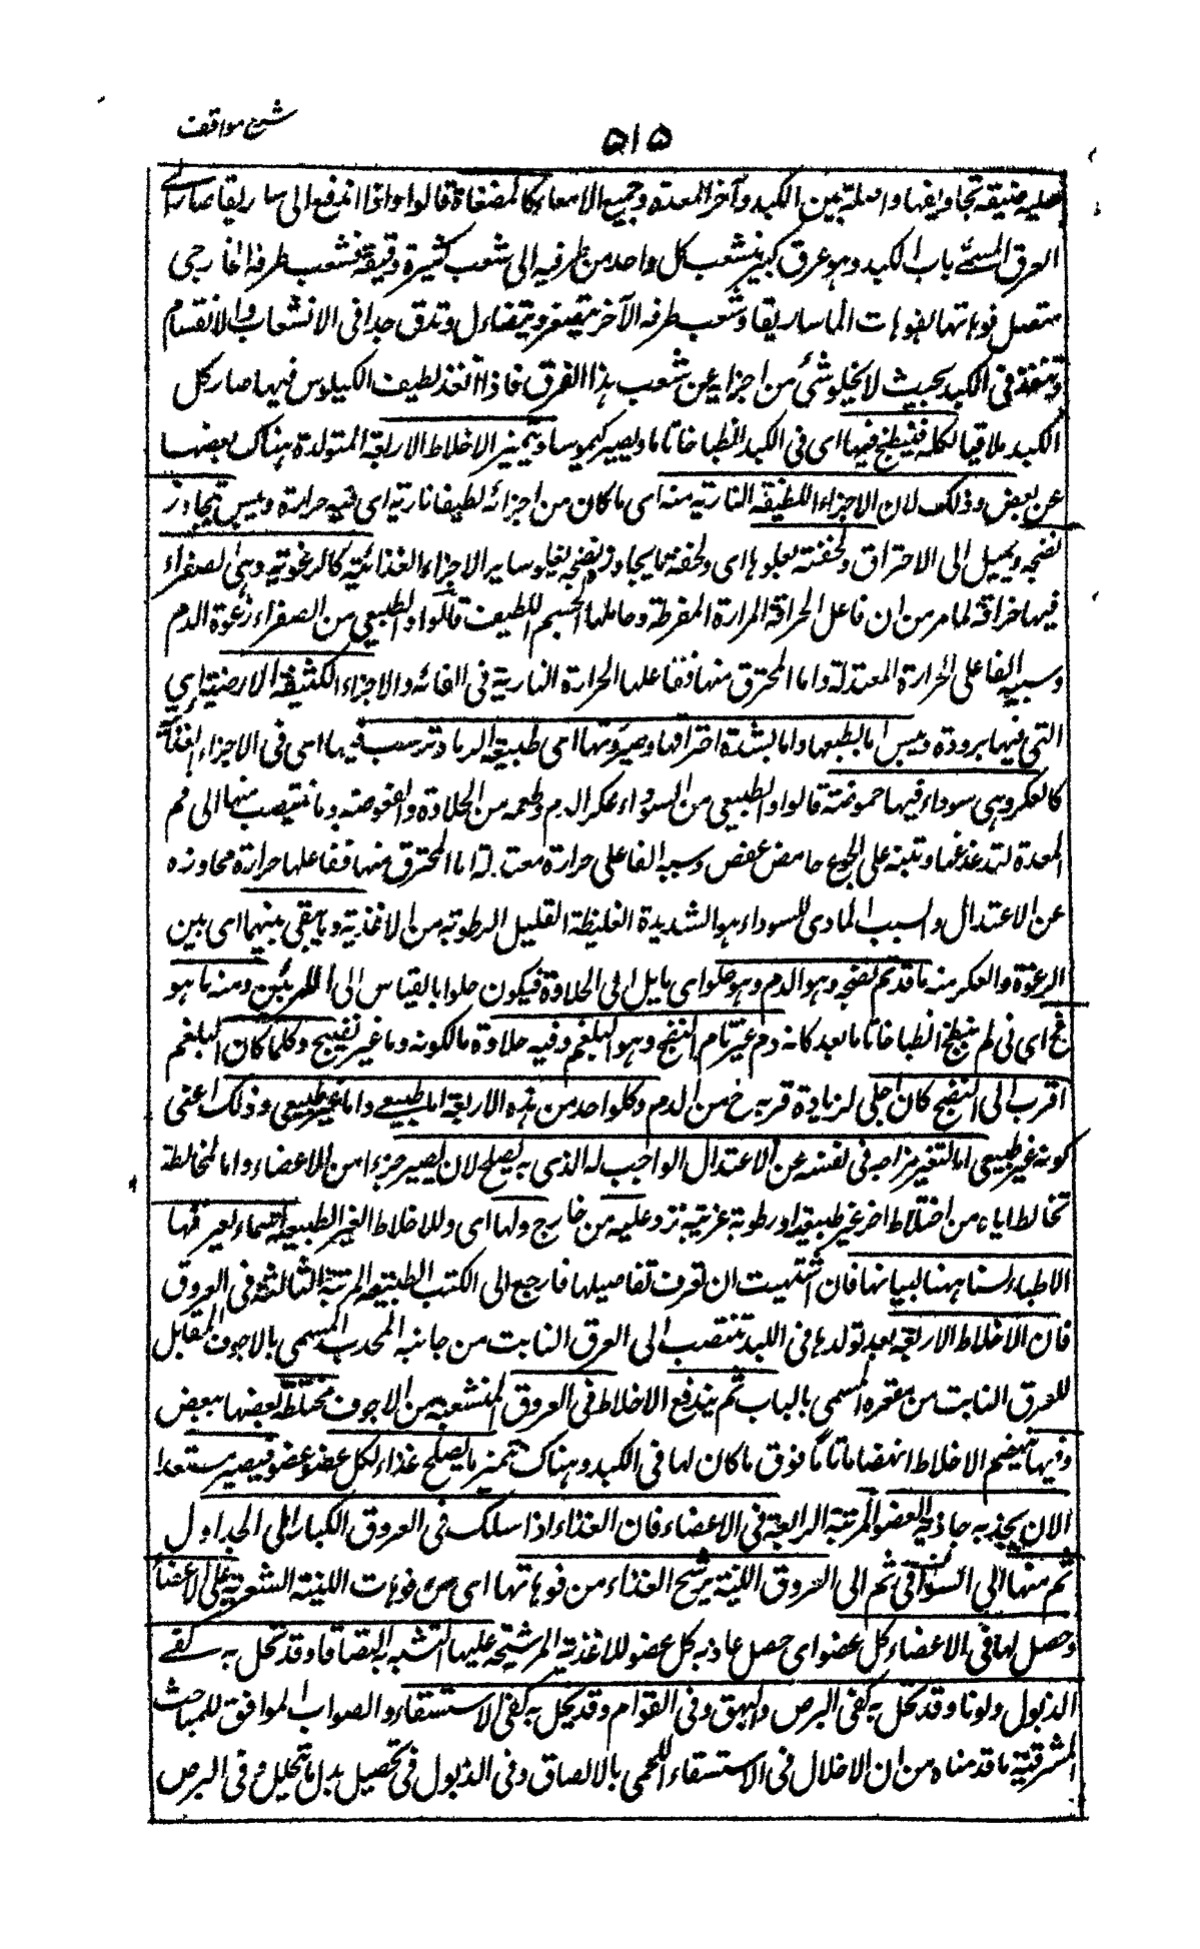 شرح مواقف
۵۱۵
صلبه ضيقه تجاويفها واصلة بين الكبد وآخر المعدة وجميع الامعاء كالمصفاة قالوا واذا اندفع الى ماساريقا صار الى
العرق المسمى باب الكبد وهو عرق كبير ينشعب كل واحد من طرفيه الى شعب كثيرة دقيقة فشعب طرفه الخارجى
متصل فوهاتها بفوهات الماساريقا وشعب طرفه الآخر يتصغر ويتضاءل وتدق جدا فى الانشعاب والانقسام
وتنفذ فى الكبد بحيث لا يخلو شئ من اجزايه عن شعب هذا العرق فاذا انفذ لطيف الكيلوس فيها صار كل
الكبد ملاقيا لكله فينطبخ فيها اى فى الكبد انطباخا تاما ويصير كيموسا ويتميز الاخلاط الاربعة المتولدة هناك بعضها
عن بعض وذلك لان الاجزاء اللطيفة النارية منه اى ما كان من اجزائه لطيفا ناريه اى فيه حرارة ويبس تجاوز
نضجه ويميل الى الاحتراق ولخفته يعلوها اى ولخفة ما يجاوز نضجه يعلو ساير الاجزاء الغذائية كالرغوة وهى الصفراء
فيها حراقة لما مر من ان فاعل الحراقة الحرارة المفرطة وحاملها الجسم اللطيف قالوا والطبيعى من الصفراء رغوة الدم
وسببه الفاعلى الحرارة المعتدلة واما المحترق منها ففاعلها الحرارة النارية فى الغائه والاجزاء الكثيفة الارضية اى
التى فيها برودة ويبس اما بطبعها واما بشدة احتراقها وصيرورتها الى طبيعة الرماد ترسب فيها اى فى الاجزاء الغذائية
كالعكر وهى سوداء فيها حموضة قالوا والطبيعى من السوداء عكر الدم وطعمه من الحلاوة والعفوصة وما ينصب منها الى فم
المعدة لتدغدغها وتنبه على الجوع حامض عفص وسببه الفاعلى حرارة معتدلة اما المحترق منها ففاعلها حرارة مجاوزه
عن الاعتدال والسبب المادى للسوداء هو الشديدة الغليظة القليل الرطوبة من الاغذية وما يبقى بينهما اى بين
الرغوة والعكر منه ما قد تم نضجه وهو الدم وهو حلو اى مايل الى الحلاوة فيكون حلوا بالقياس الى المرتين ومنه ما هو
فج اى نى لم ينطبخ انطباخا تاما بعد كانه دم غير تام النضج وهو البلغم وفيه حلاوة ما لكونه دما غير نضيج وكلما كان البلغم
اقرب الى النضج كان احلى لزيادة قربه ح من الدم وكل واحد من هذه الاربعة اما طبيعى واما غير طبيعى وذلك اعنى
كونه غير طبيعى اما لتغير مزاجه فى نفسه عن الاعتدال الواجب له الذى به يصلح لان يصير جزءا من الاعضاء واما لمخالطة
تخالط اياه من اختلاط اخر غير طبيعية او رطوبة غريبة ترد عليه من خارج ولها اى وللاخلاط الغير الطبيعية اسماء يعرفها
الاطباء لسنا ههنا لبيانها فان اشتهيت ان تعرف تفاصيلها فارجع الى الكتب الطبية المرتبة الثالثة فى العروق
فان الاخلاط الاربعة بعد تولدها فى الكبد تنصب الى العرق النابت من جانبه المحدب المسمى بالاجوف المقابل
للعرق النابت من مقعره المسمى بالباب ثم يندفع الاخلاط فى العروق المنشعبة من الاجوف مختلطة بعضها ببعض
وفيها ينهضم الاخلاط انهضاما تاما فوق ما كان لها فى الكبد وهناك يتميز ما يصلح غذاء لكل عضو عضو فيصير مستعدا
الان يجذبه جاذبة العضو المرتبة الرابعة فى الاعضاء فان الغذاء اذا سلك فى العروق الكبار الى الجداول
ثم منها الى السواقى ثم الى العروق الليفية ترشح الغذاء من فوهاتها اى من فوهات الليفية الشعرية على الاعضاء
وحصل لها فى الاعضاء كل عضو اى حصل غاذيه كل عضو للاغذية المرشحة عليها التشبه به التصاقا وقد تخل به كفى
الذبول ولونا وقد تخل به كفى البرص والبهق وفى القوام وقد يخل به كفى الاستسقاء والصواب الموافق للمباحث
المشرقية ما قدمناه من ان الاخلال فى الاستسقاء اللحمى بالالصاق وفى الذبول فى تحصيل بدل ما يتحلل وفى البرص